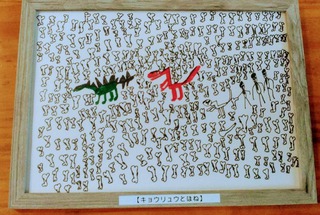 【キョウリュウとほね】